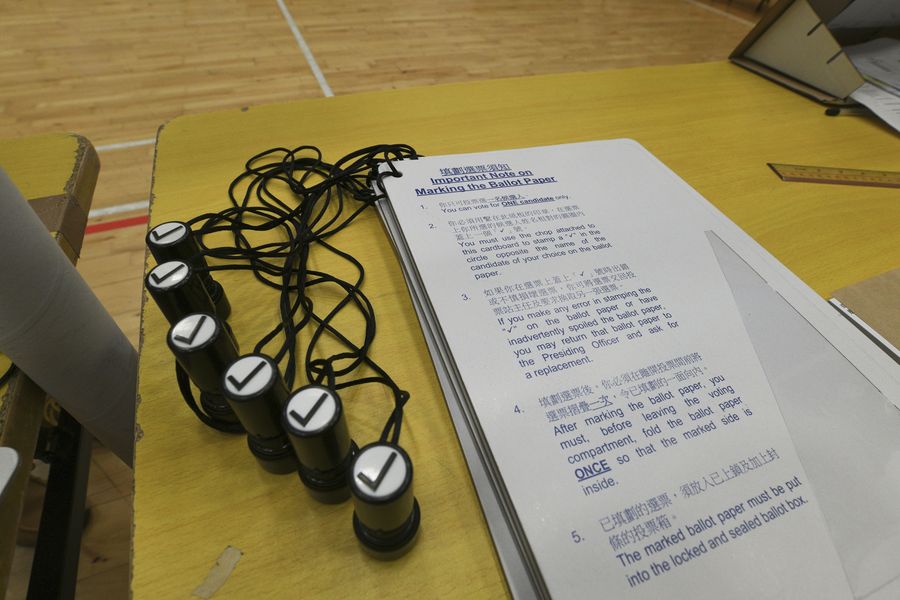 填劃選票須知
Important Note on
Marking the Ballot Paper
1. 你只可投票選一名候選人
You can vote for ONE candidate only.
2. 你必須用繫在此紙板的印章，在選票
上你所選的候選人姓名相對的圓圈內
蓋上一個「✓」號。
You must use the chop attached to
this cardboard to stamp a "✓" in the
circle opposite the name of the
candidate of your choice on the ballot
paper.
3. 如果你在選票上蓋上「✓」號時出錯
或不慎損壞選票，你可將選票交回投
票站主任及要求換取另一張選票。
If you make any error in stamping the
"✓" on the ballot paper or have
inadvertently spoiled the ballot paper,
you may return that ballot paper to
the Presiding Officer and ask for
a replacement.
4. 填劃選票後，你必須在離開投票間前將
選票摺疊一次，令已填劃的一面向內。
After marking the ballot paper, you
must, before leaving the voting
compartment, fold the ballot paper
ONCE so that the marked side is
inside.
5. 已填劃的選票，須放入已上鎖及加上封
條的投票箱。
The marked ballot paper must be put
into the locked and sealed ballot box.